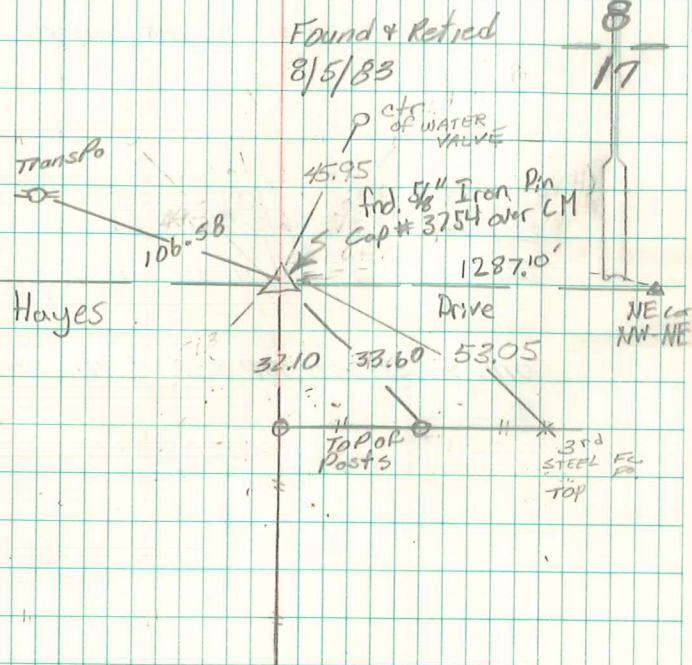 Found & Retied
8/5/83
8
17
ctr
of WATER
VALVE
TransPo
45.95
fnd. 5/8" Iron Pin
Cap # 3754 over CM
106.58
1287.10'
Hayes
Drive
NE
NW-NE
32.10
33.60
53.05
Top of
Posts
3rd
STEEL
TOP